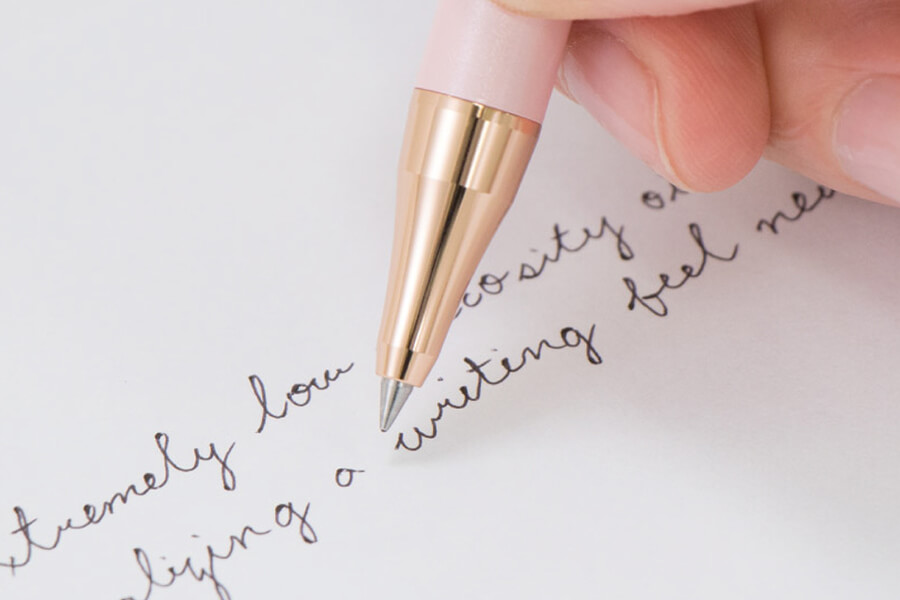 xtremely low cosity o
lizing a writing feel ne